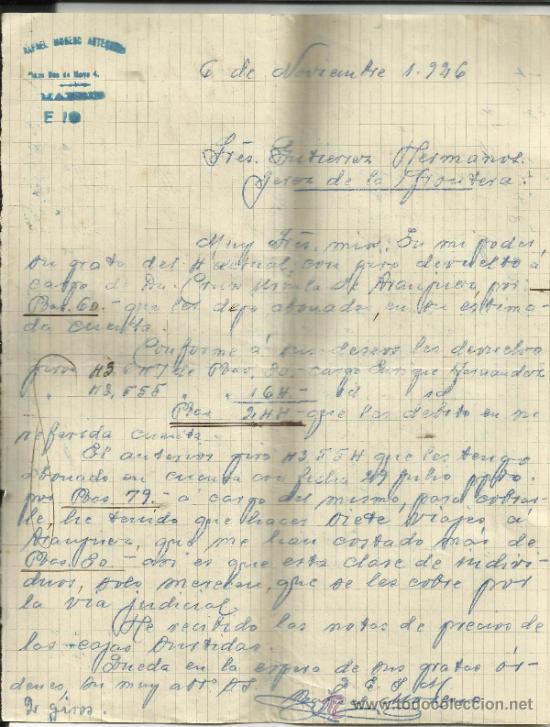 RAFAEL MORENO
Plaza Dos de Mayo 4.
MADRID
E 10
6 de Noviembre 1.926
Sres. Gutierrez Hermanos.
Jerez de la Frontera.
Muy Sres. mios: En mi poder,
su grata del 4 actual, con giro devuelto á
cargo de Da. Cruz de Aranjuez, por
Ptas. 60.- que les dejo abonadas, en su estima-
da cuenta.
Conforme á sus deseos les devuelvo
giros de Ptas. 80.- cargo Enrique Hernandez
" 43,555 " " 164- id id
Ptas 244- que les debito en su
referida cuenta.
El anterior giro 43554 que les tengo
abonado en cuenta con fecha 29 Julio ppdo.
por Ptas. 79.- á cargo del mismo, para cobrar-
le, he tenido que hacer siete viajes, á
Aranjuez, que me han costado mas de
Ptas. 80.- asi es que esta clase de indivi-
duos, solo merecen, que se les cobre por
la via judicial.
He recibido las notas de precios de
las cajas surtidas.
Queda en la espera de sus gratas ór-
denes, su muy afto. SS
Q. E. S. M.
2 giros.
todocoleccion.net